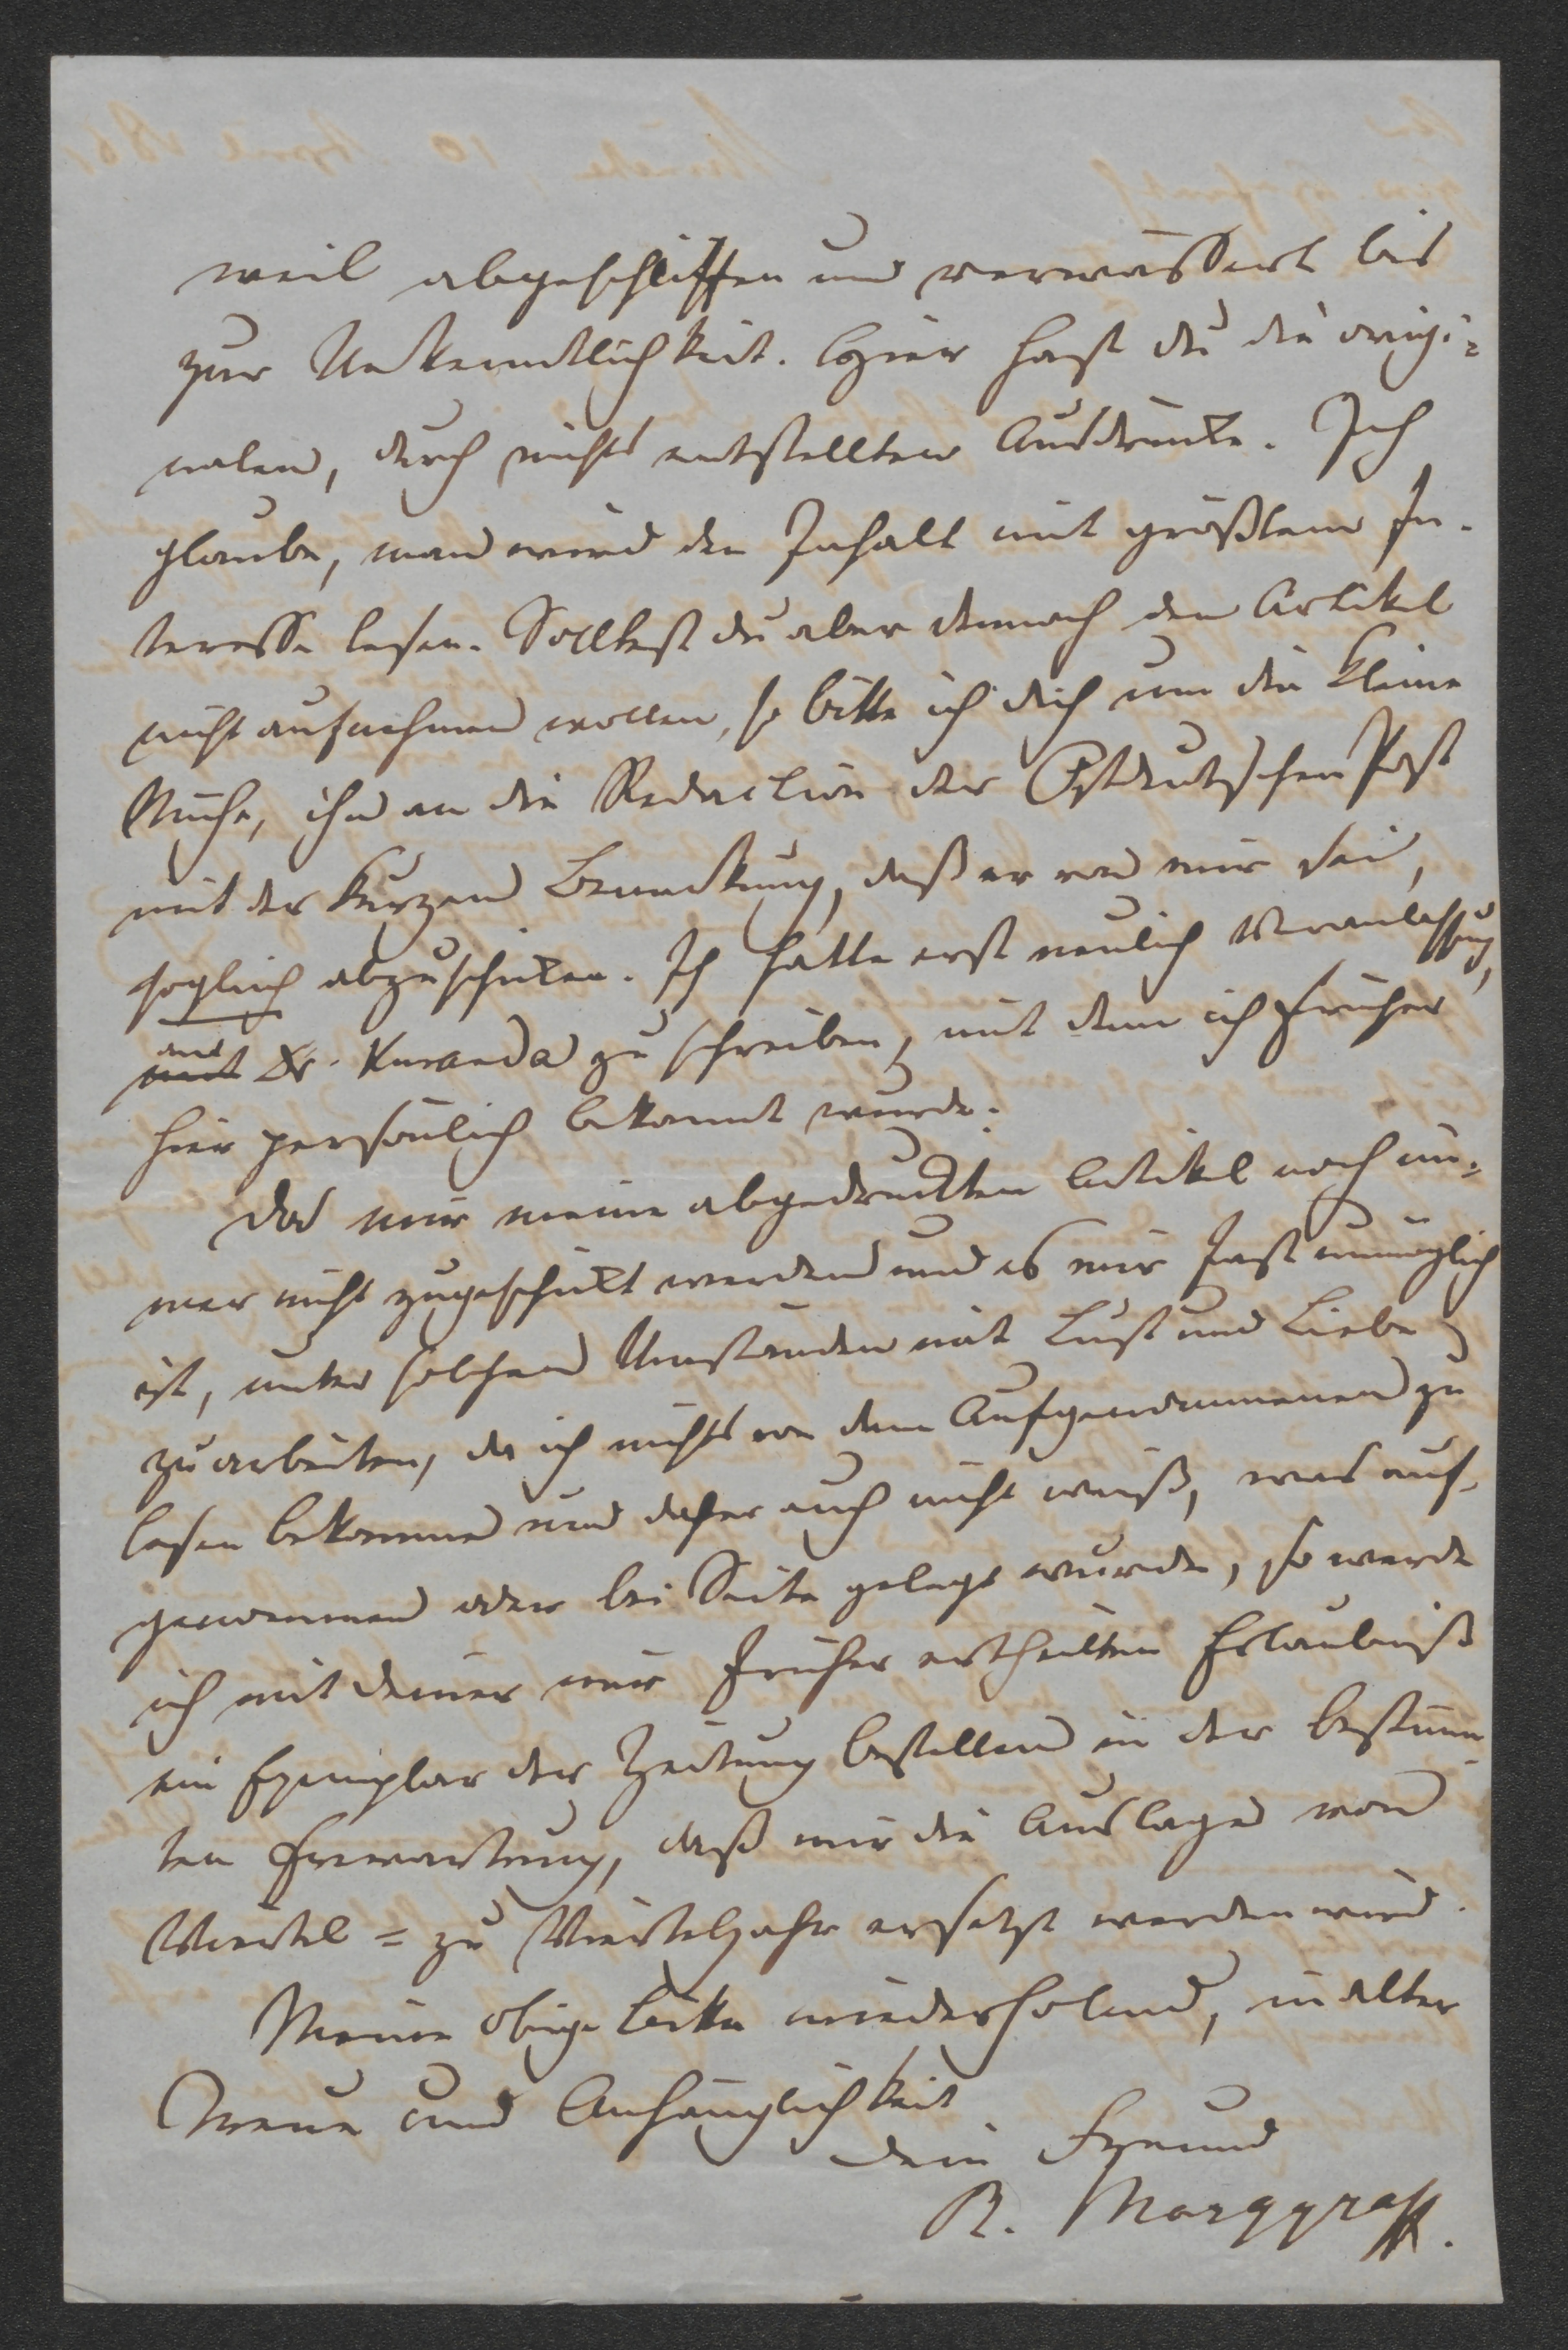 weil abgeschliffen und verwässert bis
zur Unkenntlichkeit. Hier hast du die origi=
nalen, durch nichts entstellten Ausdrücke. Ich
glaube, man wird den Inhalt mit größtem In-
teresse lesen. Solltest du aber dennoch den Artikel
nicht aufnehmen wollen, so bitte ich dich um die kleine
Mühe, ihn an die Redaction der Ostdeutschen Post
mit der kurzen Bemerkung, daß er von mir sei,
sogleich abzuschicken. Ich hatte erst neulich Veranlassung,
mit an Dr. Kuranda zu schreiben, mit dem ich früher
hier persönlich bekannt wurde.
Da mir meine abgedruckten Artikel noch im=
mer nicht zugeschickt werden und es mir fast unmöglich
ist, unter solchen Umständen mit Lust und Liebe
zu arbeiten, da ich nichts von dem Aufgenommenen zu
lesen bekomme und daher auch nicht weiß, was auf-
genommen oder bei Seite gelegt wurde, so werde
ich mit deiner mir früher ertheilten Erlaubniß
ein Exemplar der Zeitung bestellen in der bestimm-
ten Erwartung, daß mir die Auslage von
Viertel= zu Vierteljahr ersetzt werden wird.
Meine obige Bitte wiederholend, in alter
Treue und Anhänglichkeit
dein Freund
R. Marggraff.